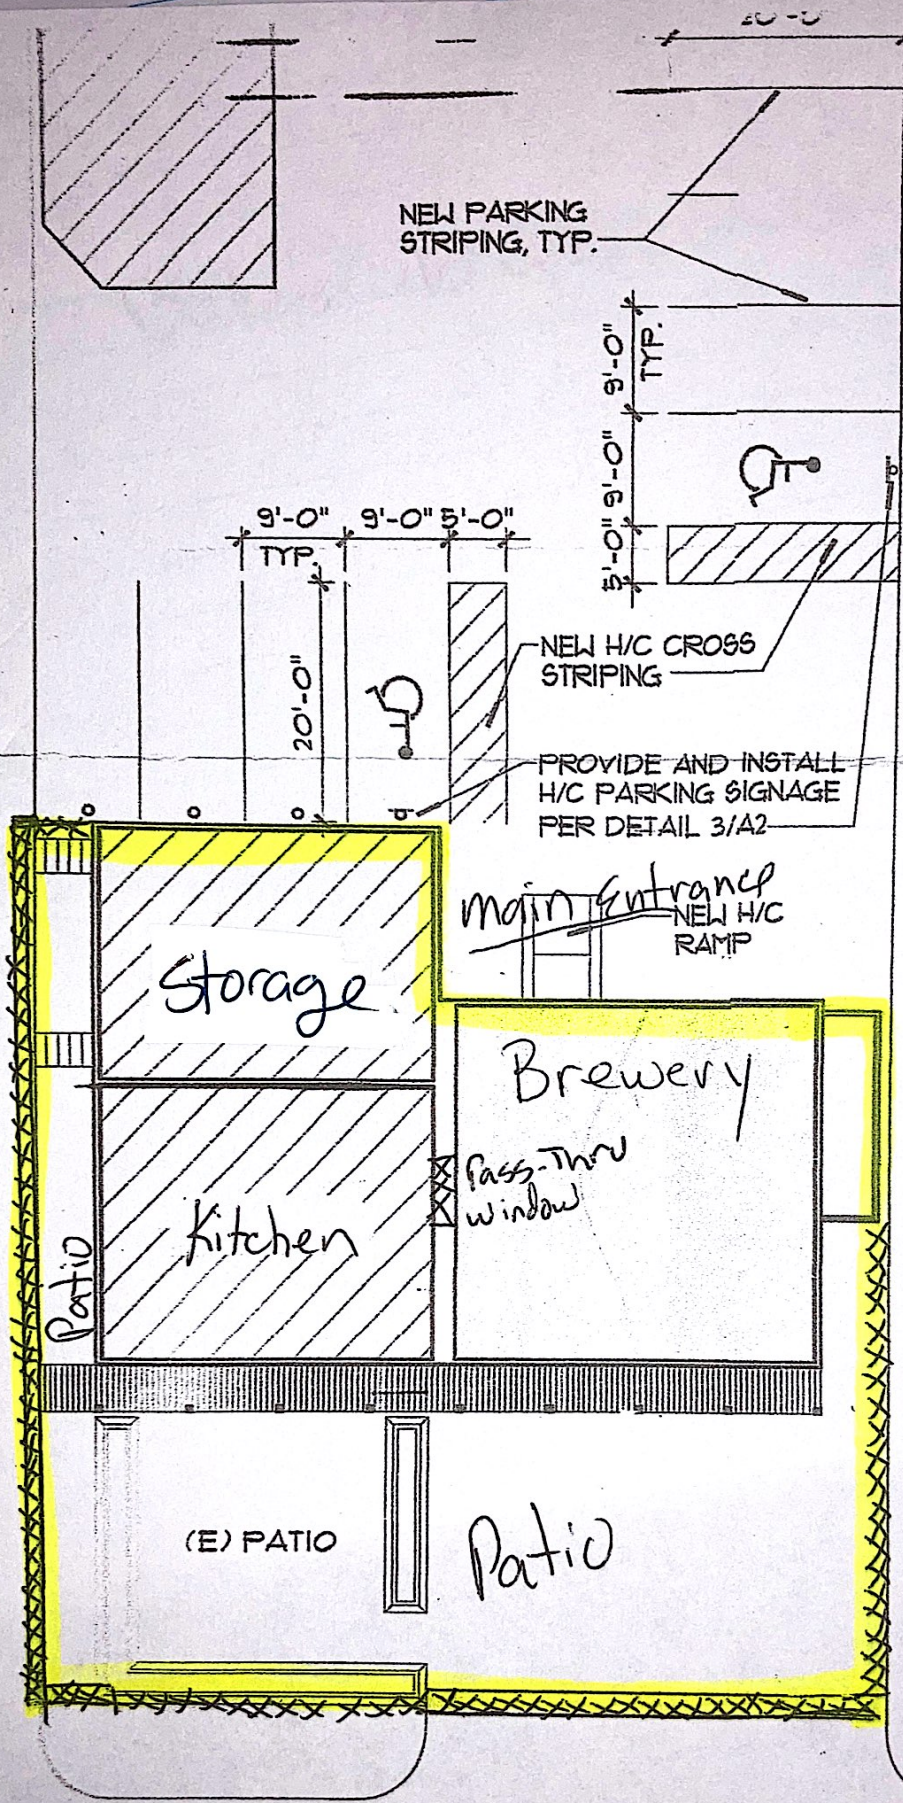 NEW PARKING
STRIPING, TYP.
9'-0"
TYP.
9'-0"
5'-0"
9'-0"
TYP.
9'-0"
5'-0"
20'-0"
NEW H/C CROSS
STRIPING
PROVIDE AND INSTALL
H/C PARKING SIGNAGE
PER DETAIL 3/A2
main Entrance
NEW H/C
RAMP
Storage
Brewery
Pass-Thru
window
Kitchen
Patio
(E) PATIO
Patio